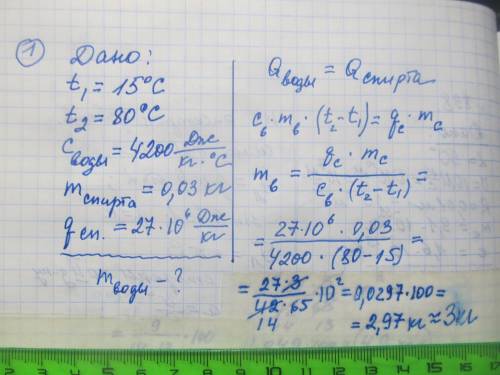 1
Дано:
t₁ = 15°C
t₂ = 80°C
Cводы = 4200 Дж/кг·°C
mспирта = 0,03 кг
qсп. = 27·10⁶ Дж/кг
mводы - ?
Qводы = Qспирта
cв·mв·(t₂-t₁) = qс·mс
mв = qс·mс / cв·(t₂-t₁) =
= 27·10⁶·0,03 / 4200·(80-15) =
= 27·3 / 42·65 ·10² = 0,0297·100 =
14
= 2,97 кг ≈ 3кг
0 1 2 3 4 5 6 7 8 9 10 11 12 13 14 15 16 17